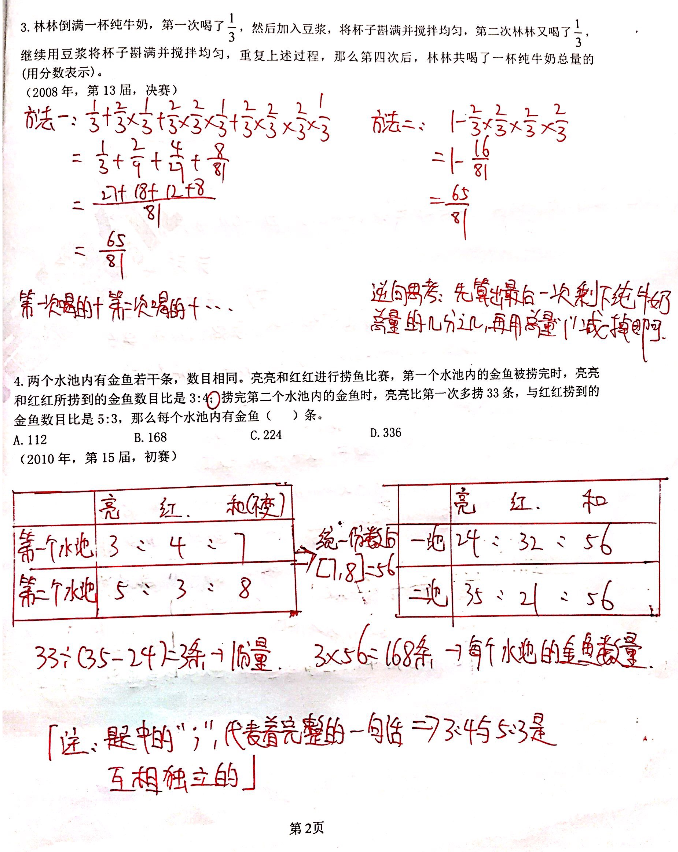 3. 林林倒满一杯纯牛奶，第一次喝了1/3，然后加入豆浆，将杯子斟满并搅拌均匀，第二次林林又喝了1/3，
继续用豆浆将杯子斟满并搅拌均匀，重复上述过程，那么第四次后，林林共喝了一杯纯牛奶总量的
(用分数表示)。
（2008 年，第 13 届，决赛）
方法一: 1/3+2/3×1/3+2/3×2/3×1/3+2/3×2/3×2/3×1/3
= 1/3+2/9+4/27+8/81
= 27+18+12+8/81
= 65/81
方法二: 1-2/3×2/3×2/3×2/3
=1-16/81
=65/81
第一次喝的+第二次喝的+···
逆向思考: 先算出最后一次剩下纯牛奶
总量的几分之几,再用总量"1"减掉即可.
4. 两个水池内有金鱼若干条，数目相同。亮亮和红红进行捞鱼比赛，第一个水池内的金鱼被捞完时，亮亮
和红红所捞到的金鱼数目比是 3:4；捞完第二个水池内的金鱼时，亮亮比第一次多捞 33 条，与红红捞到的
金鱼数目比是 5:3，那么每个水池内有金鱼（ ）条。
A. 112 B. 168 C. 224 D. 336
（2010 年，第 15 届，初赛）
亮 红. 和(不变)
第一个水池 3 : 4 : 7
第二个水池 5 : 3 : 8
统一份数后
[7,8]=56
亮 红. 和
一池 24 : 32 : 56
二池 35 : 21 : 56
33÷(35-24)=3条→1份量. 3×56=168条→每个水池的金鱼数量.
「注: 题中的";",代表着完整的一句话⇒3:4与5:3是
互相独立的」
第 2页